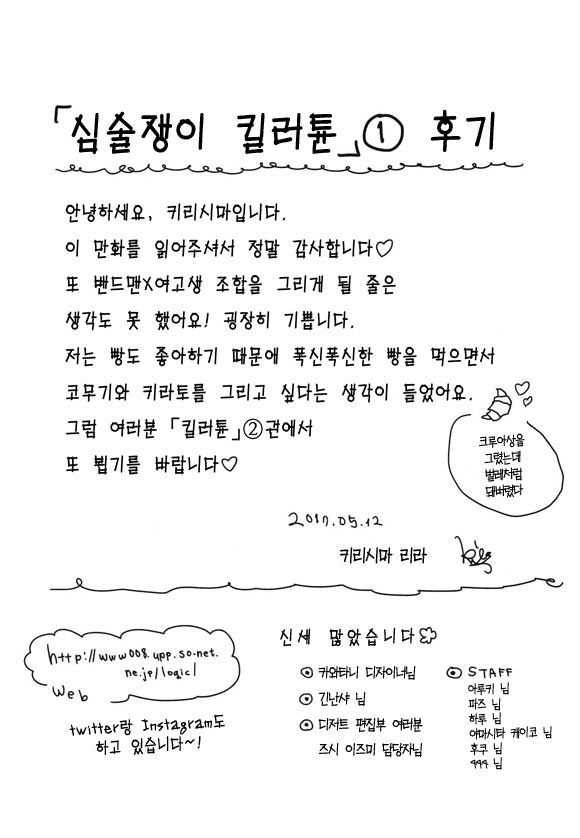 「심술쟁이 킬러튠」① 후기
안녕하세요, 키리시마입니다.
이 만화를 읽어주셔서 정말 감사합니다♡
또 밴드맨X여고생 조합을 그리게 될 줄은
생각도 못 했어요! 굉장히 기쁩니다.
저는 빵도 좋아하기 때문에 폭신폭신한 빵을 먹으면서
코무기와 키라토를 그리고 싶다는 생각이 들었어요.
그럼 여러분 「킬러튠」②권에서
또 뵙기를 바랍니다♡
크루아상을
그렸는데
벌레처럼
돼버렸다
2017.05.12
키리시마 리라
http://www008.upp.so-net.
ne.jp/logic/
Web
twitter랑 Instagram도
하고 있습니다~!
신세 많았습니다
카와타니 디자이너님
긴난샤 님
디저트 편집부 여러분
즈시 이즈미 담당자님
STAFF
아루키 님
파즈 님
하루 님
야마시타 케이코 님
후쿠 님
님